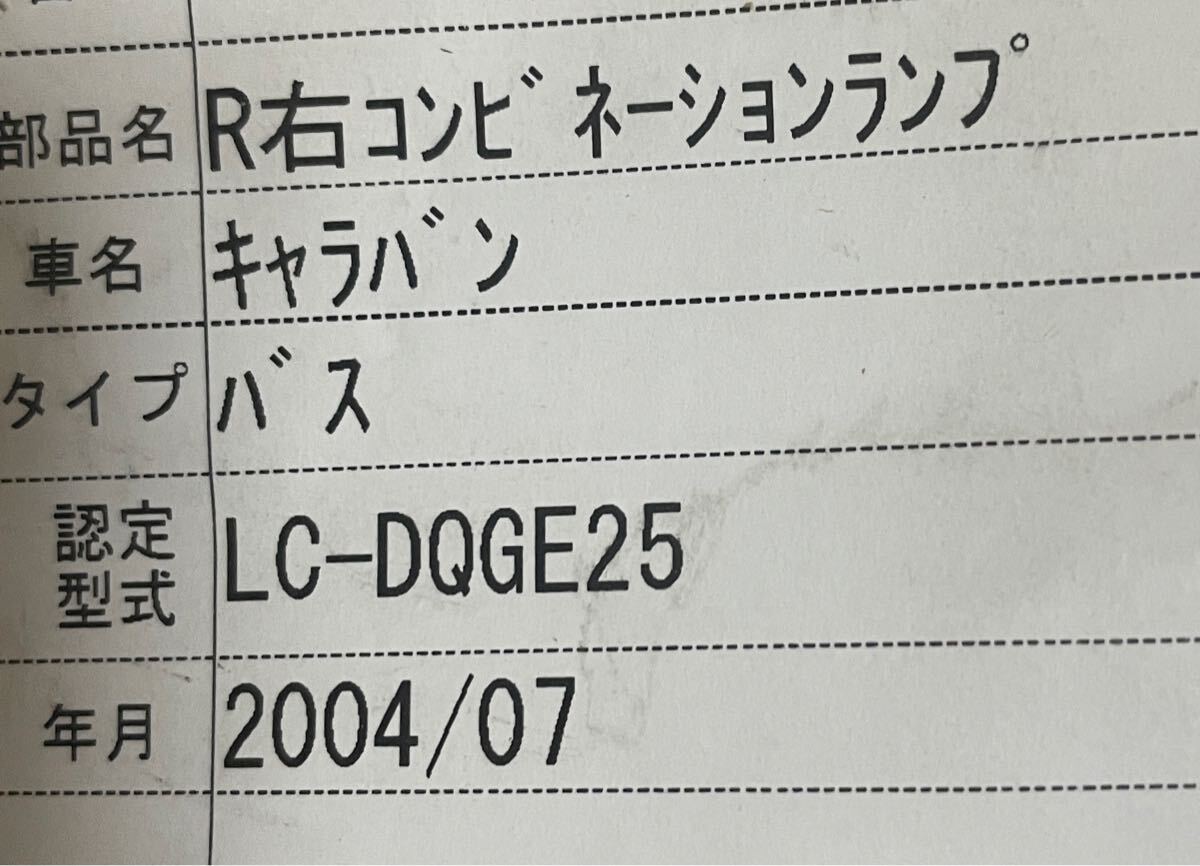 部品名 R右ｺﾝﾋﾞﾈｰｼｮﾝﾗﾝﾌﾟ
車名 ｷｬﾗﾊﾞﾝ
タイプ ﾊﾞｽ
認定型式 LC-DQGE25
年月 2004/07